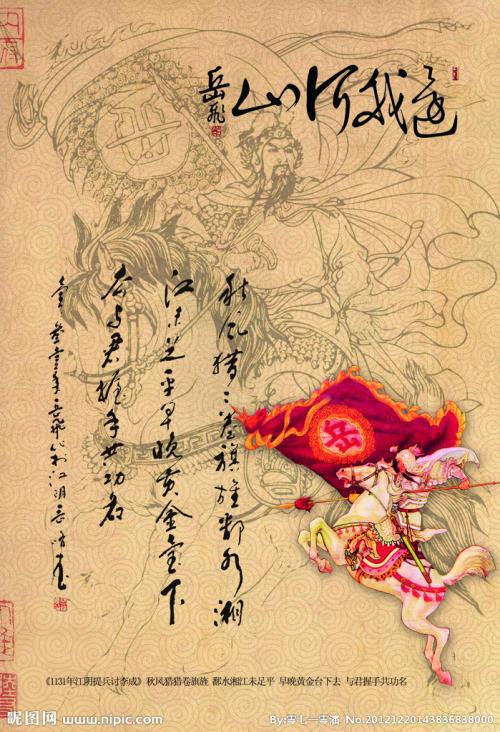 還我河山
岳飛
秋风猎〻卷旗旌鄱水湘
江未足平早晚黄金台下
去与君握手共功名
岳
《1131年江阴提兵讨李成》秋风猎猎卷旗旌 鄱水湘江未足平 早晚黄金台下去 与君握手共功名
昵图网 www.nipic.com
By:零七一零潘 No.20121220143836838000